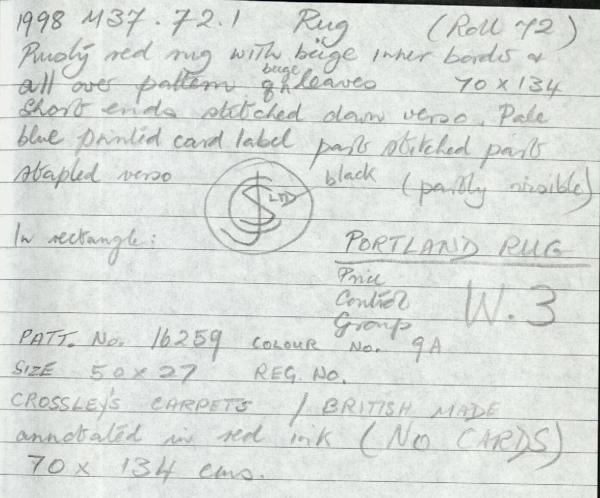 1998 M37.72.1 Rug (Roll 72)
Rusty red rug with beige inner border &
all over pattern of beige leaves 70 x 134
Short ends stitched down verso. Pale
blue printed card label part stitched part
stapled verso JS LTD black (partly visible)
In rectangle: PORTLAND RUG
Price
Control W.3
Group
PATT. No. 16259 COLOUR No. 9A
SIZE 50 x 27 REG. NO.
CROSSLEY'S CARPETS / BRITISH MADE
annotated in red ink (NO CARDS)
70 x 134 cms.